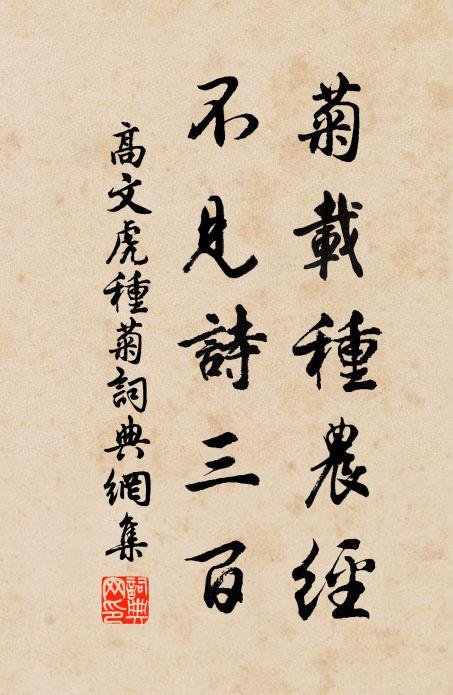 菊載種農經
不見詩三百
高文虎種菊詞典網集
詞典网印